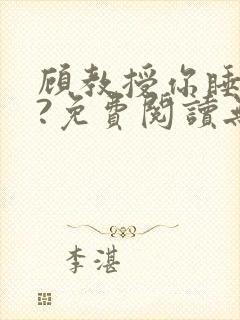 顾教授你睡
?免費閱讀
李湛